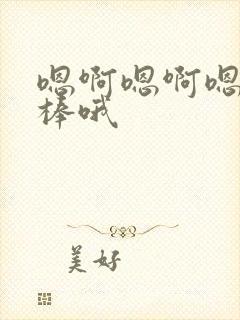 嗯啊嗯啊嗯
棒哦
美好